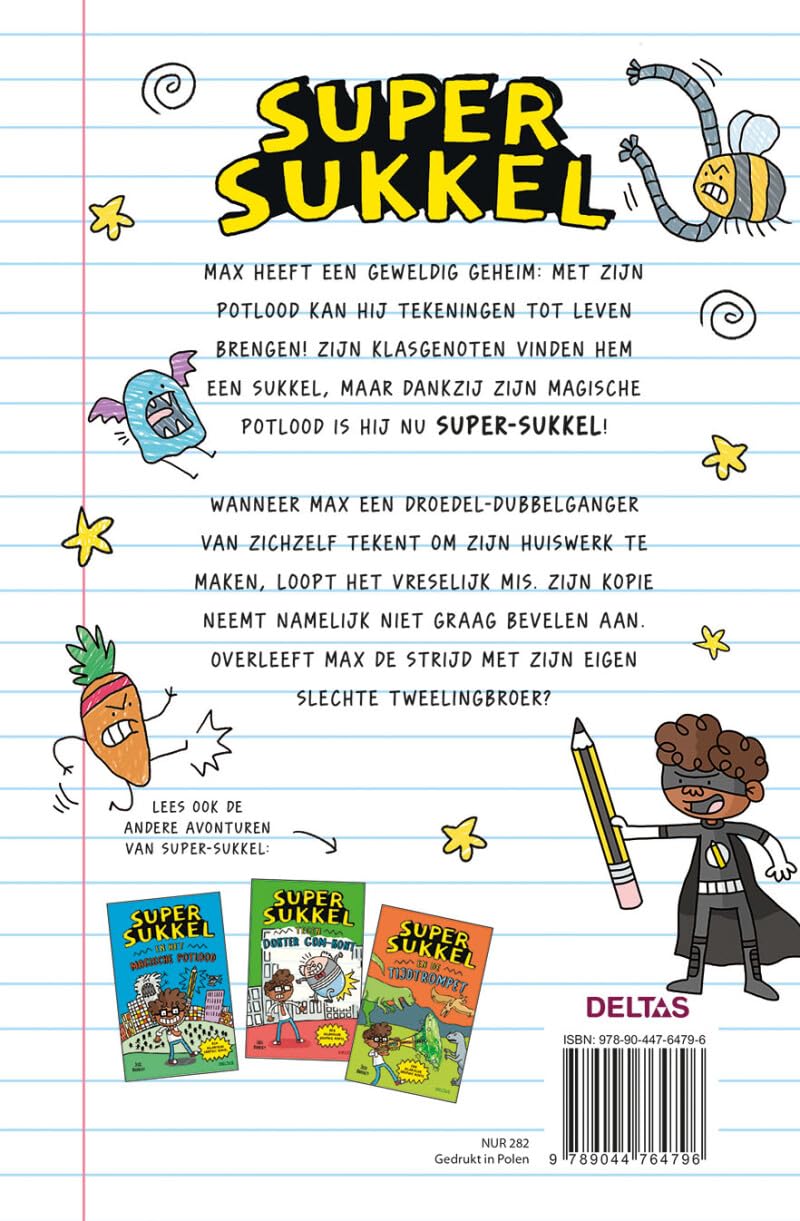 SUPER
SUKKEL
MAX HEEFT EEN GEWELDIG GEHEIM: MET ZIJN
POTLOOD KAN HIJ TEKENINGEN TOT LEVEN
BRENGEN! ZIJN KLASGENOTEN VINDEN HEM
EEN SUKKEL, MAAR DANKZIJ ZIJN MAGISCHE
POTLOOD IS HIJ NU SUPER-SUKKEL!
WANNEER MAX EEN DROEDEL-DUBBELGANGER
VAN ZICHZELF TEKENT OM ZIJN HUISWERK TE
MAKEN, LOOPT HET VRESELIJK MIS. ZIJN KOPIE
NEEMT NAMELIJK NIET GRAAG BEVELEN AAN.
OVERLEEFT MAX DE STRIJD MET ZIJN EIGEN
SLECHTE TWEELINGBROER?
LEES OOK DE
ANDERE AVONTUREN
VAN SUPER-SUKKEL:
SUPER
SUKKEL
EN HET
MAGISCHE POTLOOD
SUPER
SUKKEL
TEGEN
DOKTER GOM-KONT
SUPER
SUKKEL
EN DE
TIJDTROMPET
DELTAS
ISBN: 978-90-447-6479-6
NUR 282
Gedrukt in Polen
9 789044 764796